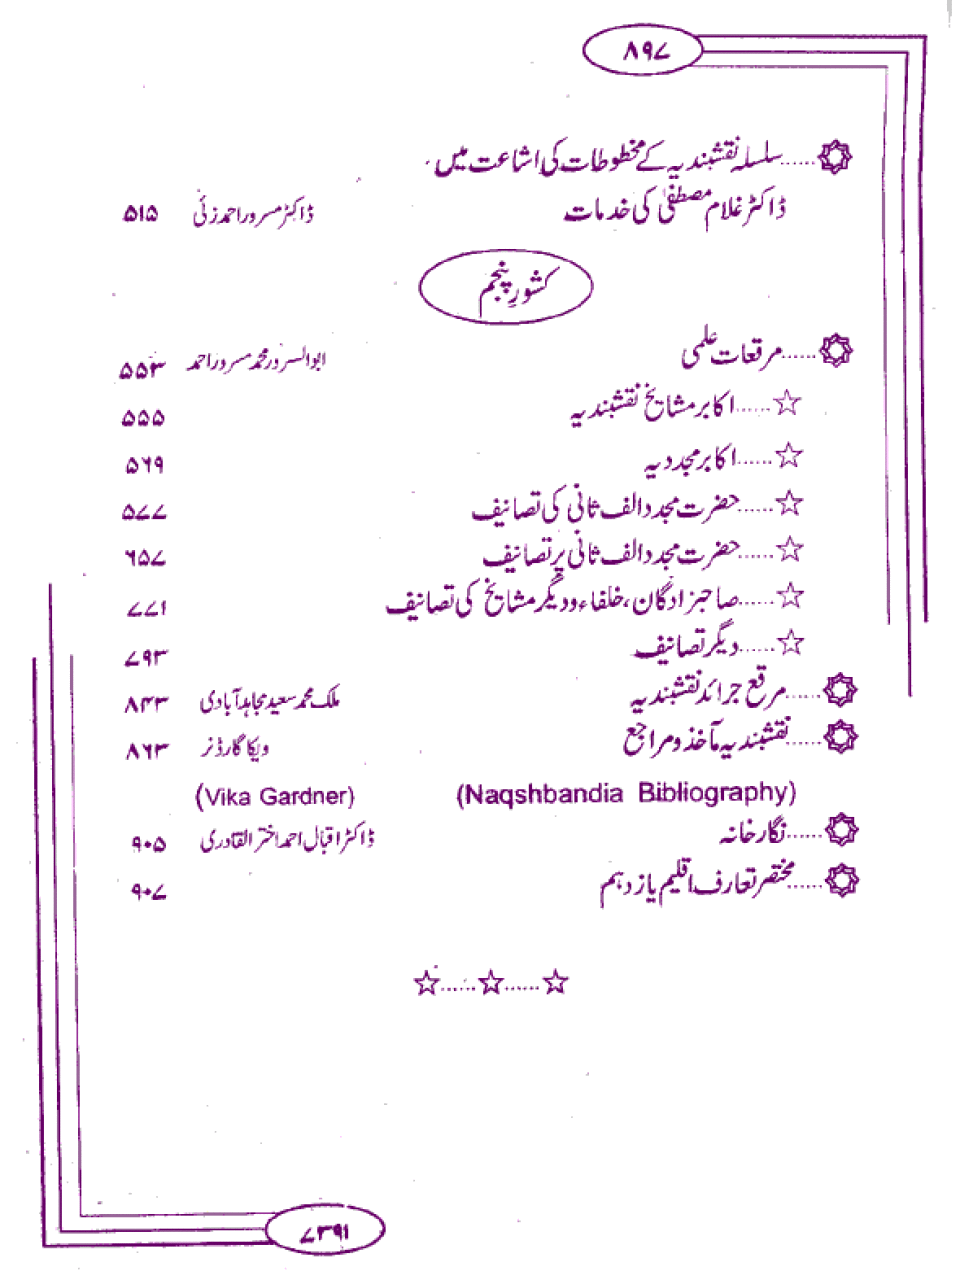 ۸۹۷
......سلسلہ نقشبندیہ کے مخطوطات کی اشاعت میں
ڈاکٹر غلام مصطفیٰ کی خدمات ڈاکٹر مسرور احمد زئی ۵۱۵
کشورِ پنجم
......مرقعات علمی ابوالسرور محمد مسرور احمد ۵۵۳
☆......اکابر مشایخ نقشبندیہ ۵۵۵
☆......اکابر مجددیہ ۵۶۹
☆......حضرت مجدد الف ثانی کی تصانیف ۵۷۷
☆......حضرت مجدد الف ثانی پر تصانیف ۶۵۷
☆......صاحبزادگان، خلفاء ودیگر مشایخ کی تصانیف ۷۷۱
☆......دیگر تصانیف ۷۹۳
......مرقع جرائد نقشبندیہ ملک محمد سعید مجاہد آبادی ۸۴۳
......نقشبندیہ مآخذ و مراجع ویکا گارڈنر ۸۶۳
(Naqshbandia Bibliography) (Vika Gardner)
......نگار خانہ ڈاکٹر اقبال احمد اختر القادری ۹۰۵
......مختصر تعارف اقلیم یازدہم ۹۰۷
☆......☆......☆
۷۳۹۱